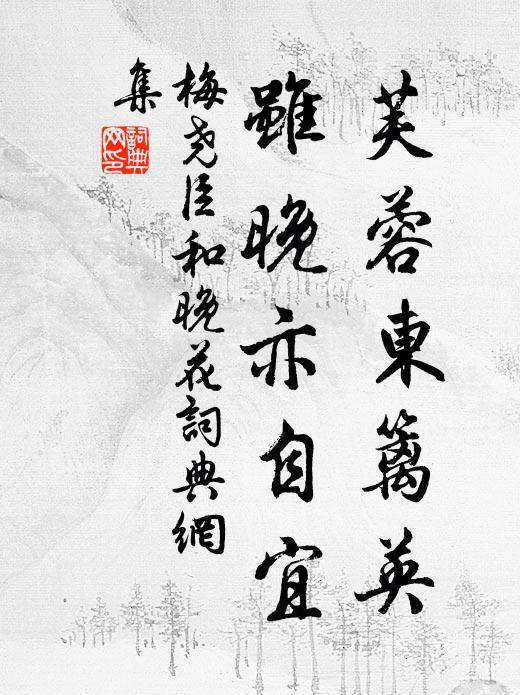 芙蓉東籬英
雖晚亦自宜
梅尧臣和晚花詞典網
集
詞典
网印